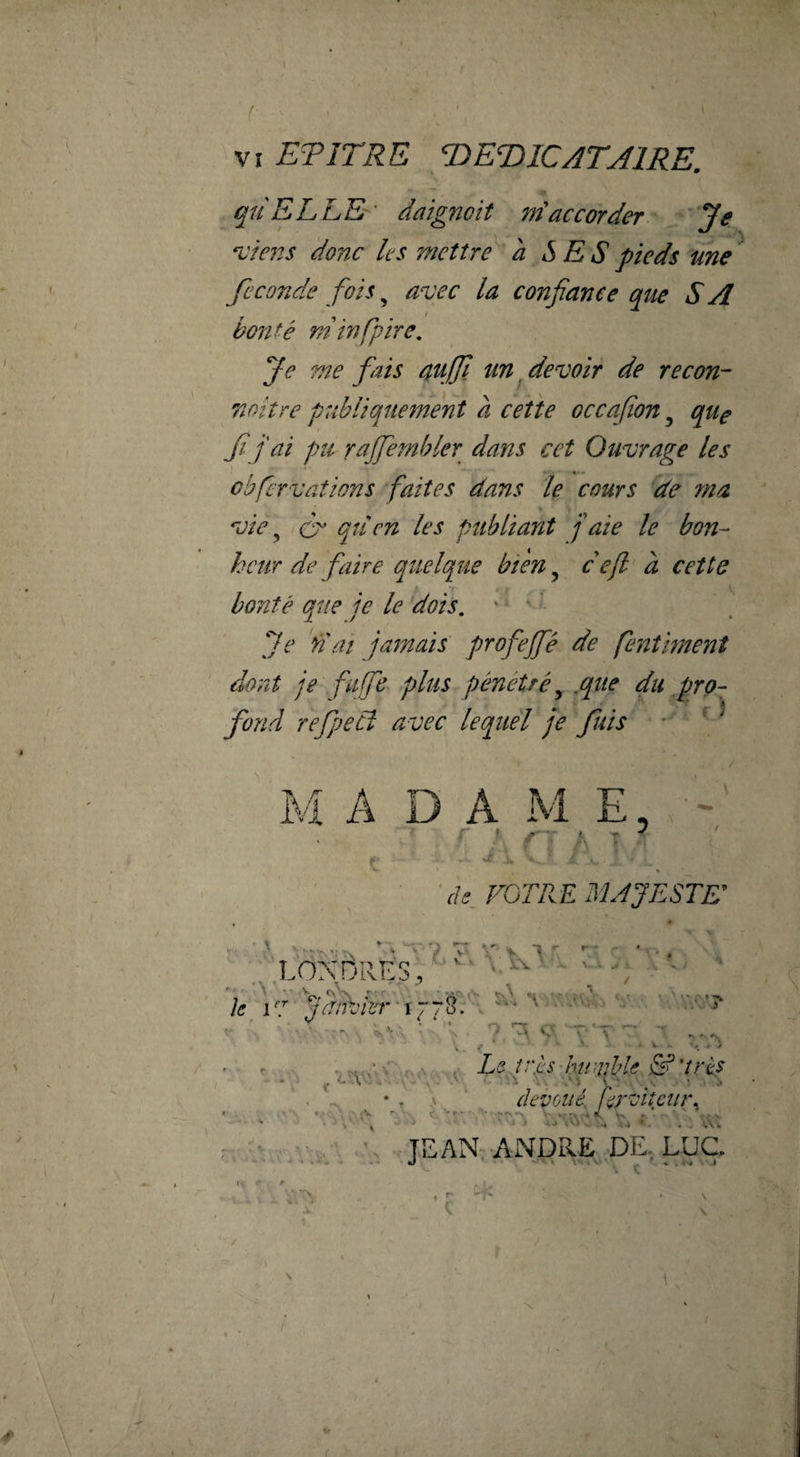 vi EPITRE DEDICATAIRE.
qu'ELLE daignoit m'accorder Je
viens donc les mettre à SES pieds une
seconde fois, avec la confiance que SA
bonté m'inspire.
Je me fais aussi un devoir de recon-
noitre publiquement à cette occasion, que
si j'ai pu rassembler dans cet Ouvrage les
observations faites dans le cours de ma
vie, & qu'en les publiant j'aie le bon-
heur de faire quelque bien, c'est à cette
bonté que je le dois.
Je n'ai jamais professé de sentiment
dont je fusse plus pénétré, que du pro-
fond respect avec lequel je suis
MADAME,
de VOTRE MAJESTE'
LONDRES,
le 1r Janvier 1778.
Le très humble & très
devoué serviteur,
JEAN ANDRE DE LUC.